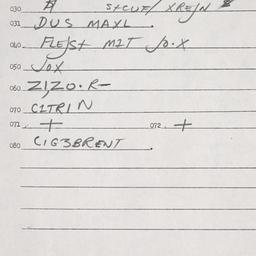 030
031 DUS MAXL
040 FLEJST MIT JO.X
050 JOX
060 ZIZO.R-
070 CITRIN
071 + 072 +
080 CIG3BRENT.